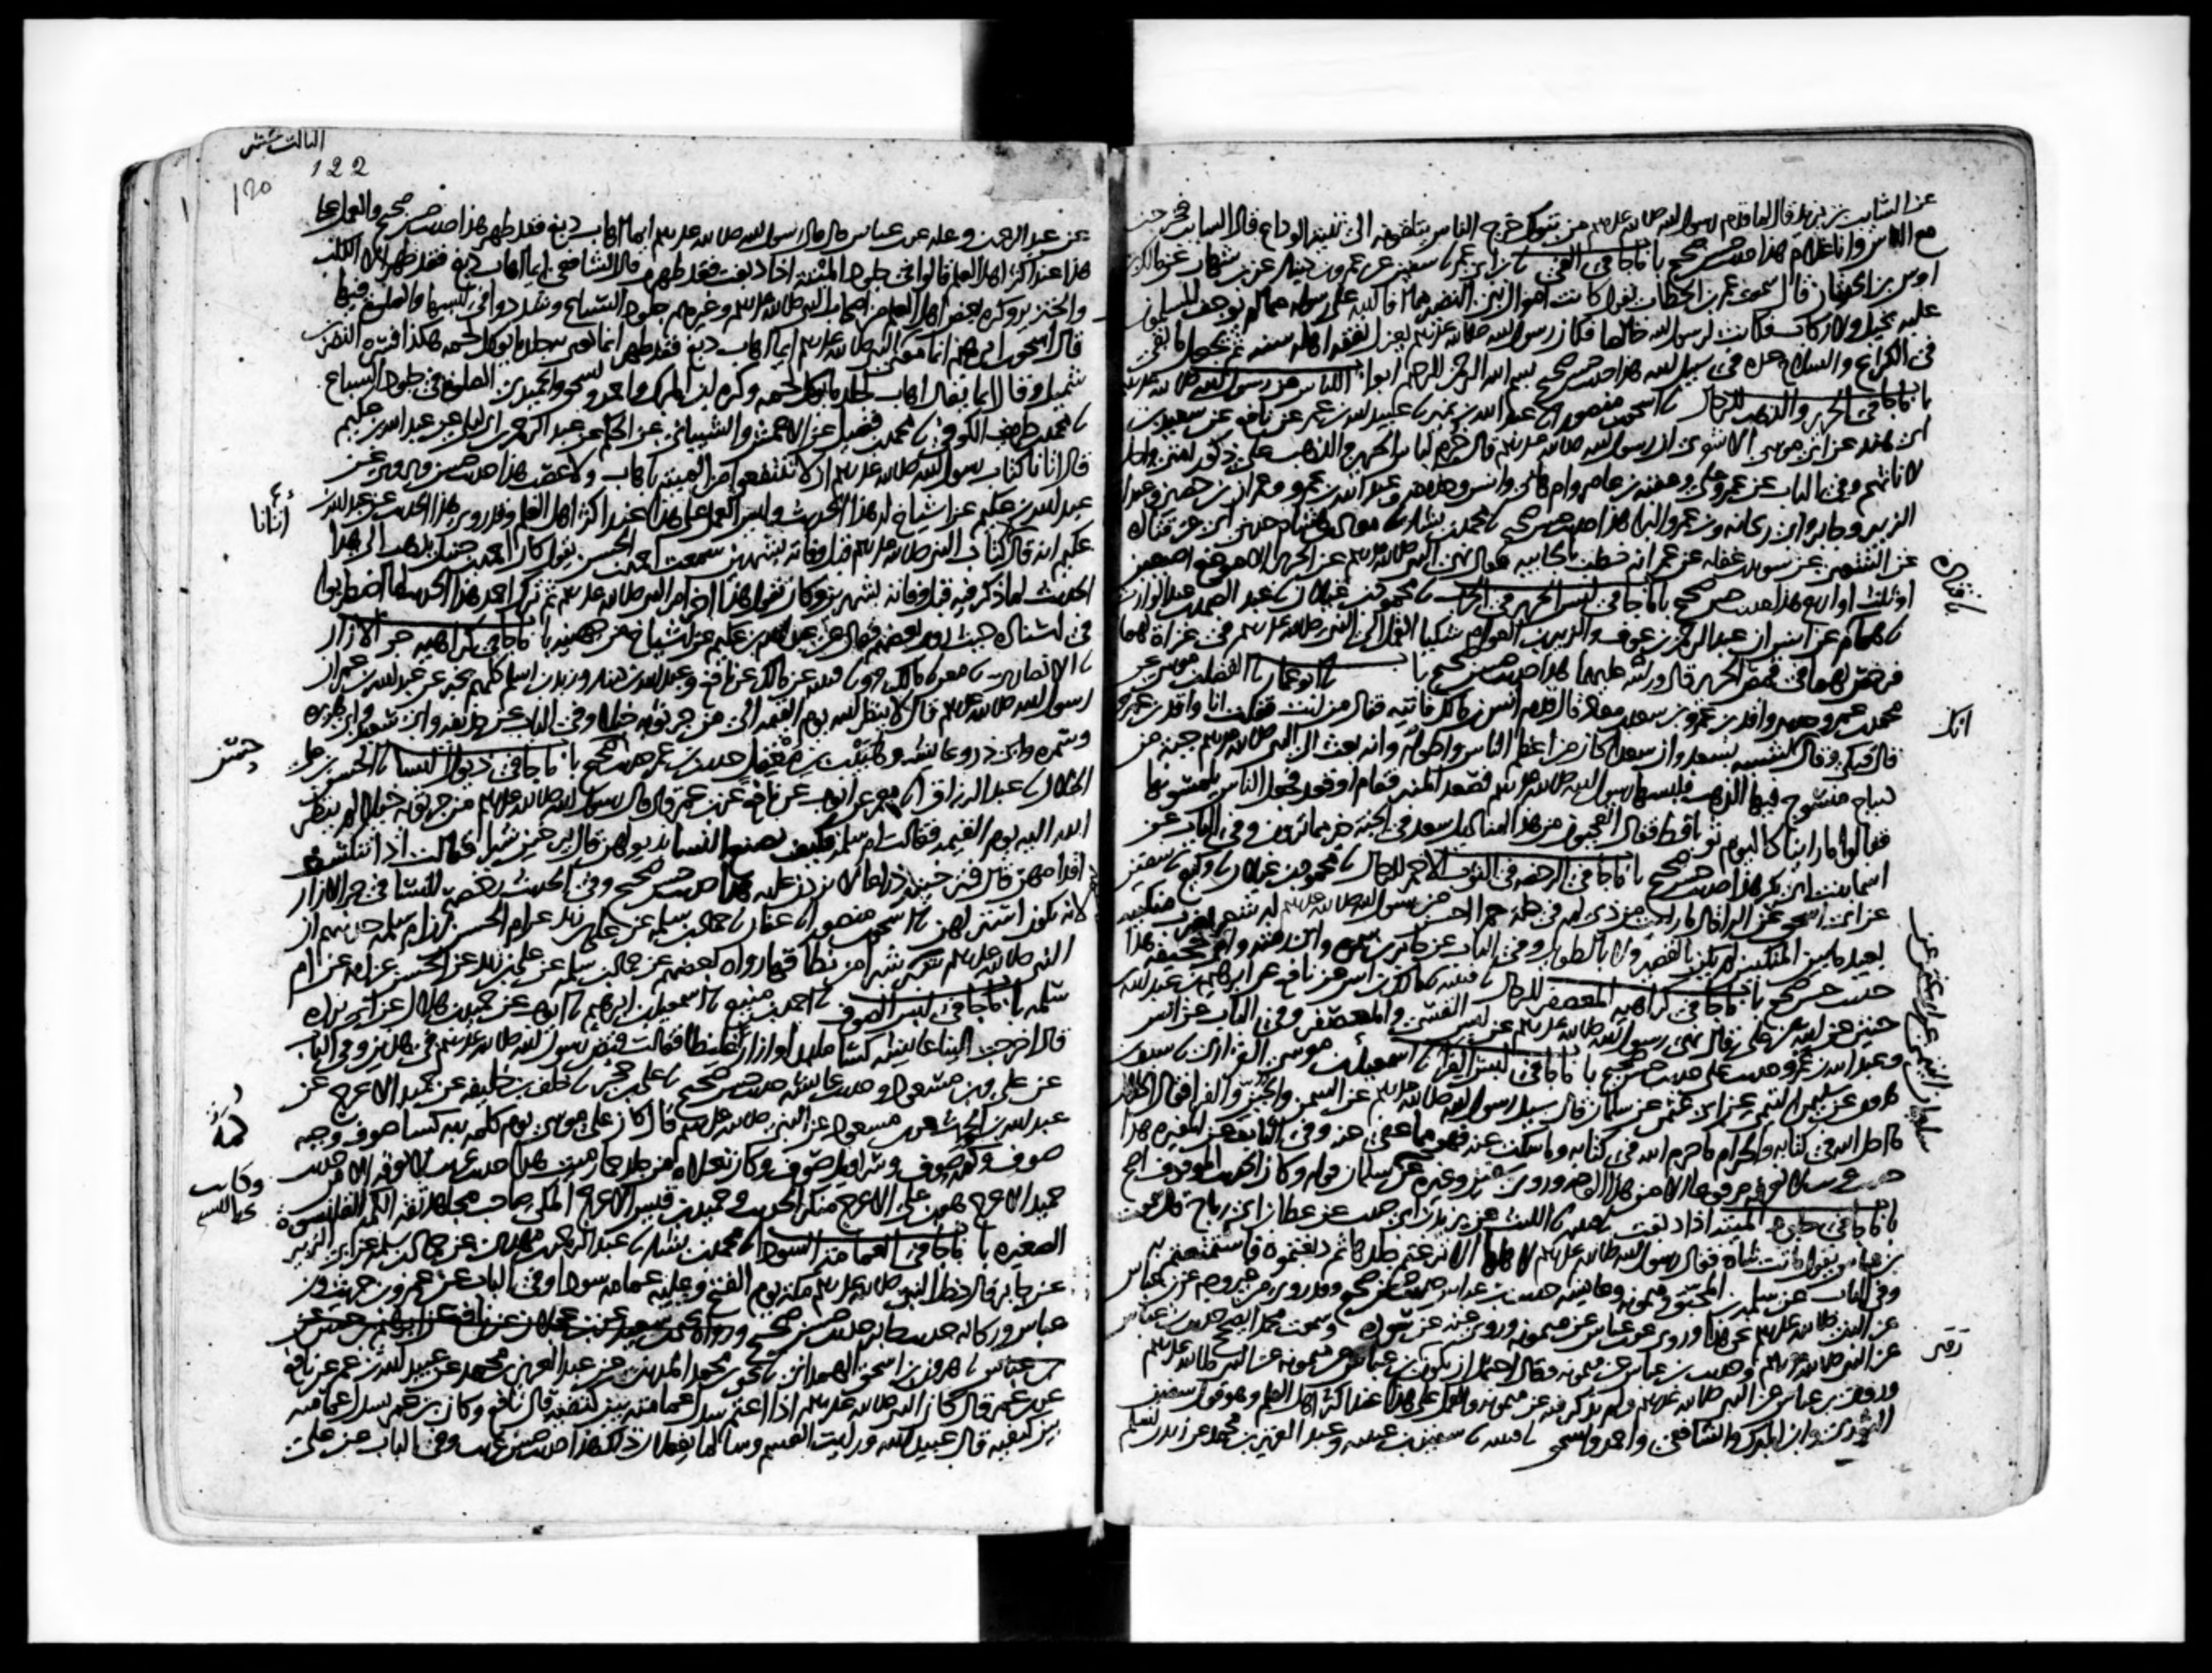 عن السائب بن يزيد قال لما قدم رسول الله صلى الله عليه وسلم من تبوك خرج الناس يتلقونه الى ثنية الوداع قال السائب فخرجت
مع الناس وانا غلام هذا حديث حسن صحيح باب ما جا في الفي ثنا ابن ابي عمر ثنا سفين عن عمرو بن دينار عن ابن شهاب عن مالك بن
اوس بن الحدثان قال سمعت عمر بن الخطاب يقول كانت اموال بني النضير مما افا الله على رسوله مما لم يوجف المسلمون
عليه بخيل ولا ركاب فكانت لرسول الله خالصا فكان رسول الله صلى الله عليه وسلم يعزل نفقة اهله سنة ثم يجعل ما بقي
في الكراع والسلاح عدة في سبيل الله هذا حديث حسن صحيح بسم الله الرحمن الرحيم ابواب اللباس عن رسول الله صلى الله عليه وسلم
باب ما جا في الحرير والذهب للرجال ثنا اسحق بن منصور انا عبد الله بن نمير ثنا عبيد الله بن عمر عن نافع عن سعيد بن
ابي هند عن ابي موسى الاشعري ان رسول الله صلى الله عليه وسلم قال حرم لباس الحرير والذهب على ذكور امتي واحل
لاناثهم وفي الباب عن عمر وعلي وعقبة بن عامر وام هانئ وانس وحذيفة وعبد الله بن عمرو وعمران بن حصين وعبد الله بن
الزبير وجابر وابي ريحانة وبن عمر والبرا هذا حديث حسن صحيح ثنا محمد بن بشار ثنا معاذ بن هشام حدثني ابي عن قتادة
عن الشعبي عن سويد بن غفلة عن عمر انه خطب بالجابية فقال نهى النبي صلى الله عليه وسلم عن الحرير الا موضع اصبعين
او ثلث او اربع هذا حديث حسن صحيح باب ما جا في لبس الحرير في الحرب ثنا محمود بن غيلان ثنا عبد الصمد بن عبد الوارث
ثنا همام عن انس ان عبد الرحمن بن عوف والزبير بن العوام شكيا القمل الى النبي صلى الله عليه وسلم في غزاة لهما
فرخص لهما في قمص الحرير قال ورايته عليهما هذا حديث حسن صحيح باب ثنا ابو عمار ثنا الفضل بن موسى عن
محمد بن عمرو ثنا واقد بن عمرو بن سعد بن معاذ قال قدم انس بن مالك فاتيته فقال من انت فقلت انا واقد بن عمرو
قال فبكى وقال لشبيه بسعد وان سعدا كان من اعظم الناس واطوله وانه بعث الى النبي صلى الله عليه وسلم جبة من
ديباج منسوج فيها الذهب فلبسها رسول الله صلى الله عليه وسلم فصعد المنبر فقام او قعد فجعل الناس يلمسونها
فقالوا ما راينا كاليوم ثوبا قط فقال اتعجبون من هذا لمناديل سعد في الجنة خير مما ترون وفي الباب عن
اسما بنت ابي بكر هذا حديث حسن صحيح باب ما جا في الرخصة في الثوب الاحمر للرجال ثنا محمود بن غيلان ثنا وكيع ثنا سفين
عن ابي اسحق عن البرا قال ما رايت من ذي لمة في حلة حمرا احسن من رسول الله صلى الله عليه وسلم له شعر يضرب منكبيه
بعيد ما بين المنكبين لم يكن بالقصير ولا بالطويل وفي الباب عن جابر بن سمرة وابي رمثة وابي جحيفة هذا
حديث حسن صحيح باب ما جا في كراهية المعصفر للرجال ثنا قتيبة ثنا مالك بن انس عن نافع عن ابرهيم بن عبد الله بن
حنين عن ابيه عن علي قال نهى رسول الله صلى الله عليه وسلم عن لبس القسي والمعصفر وفي الباب عن انس
وعبد الله بن عمرو حديث علي حديث حسن صحيح باب ما جا في لبس الفرا ثنا اسمعيل بن موسى الفزاري ثنا سيف بن
هرون عن سليمن التيمي عن ابي عثمن عن سلمان قال سئل رسول الله صلى الله عليه وسلم عن السمن والجبن والفرا فقال الحلال
ما احل الله في كتابه والحرام ما حرم الله في كتابه وما سكت عنه فهو مما عفي عنه وفي الباب عن المغيرة هذا
حديث غريب لا نعرفه مرفوعا الا من هذا الوجه وروى سفين وغيره عن سلمان قوله وكان الحديث الموقوف اصح
باب ما جا في جلود الميتة اذا دبغت ثنا قتيبة ثنا الليث عن يزيد بن ابي حبيب عن عطا بن ابي رباح قال سمعت
بن عباس يقول ماتت شاة فقال رسول الله صلى الله عليه وسلم لاهلها الا نزعتم جلدها ثم دبغتموه فاستمتعتم به
وفي الباب عن سلمة بن المحبق وميمونة وعائشة حديث بن عباس حديث حسن صحيح وقد روي من غير وجه عن بن عباس
عن النبي صلى الله عليه وسلم نحو هذا وروي عن بن عباس عن ميمونة وروي عنه عن سودة وسمعت محمدا يصحح حديث بن عباس
عن النبي صلى الله عليه وسلم وحديث بن عباس عن ميمونة وقال احتمل ان يكون بن عباس عن ميمونة عن النبي صلى الله عليه وسلم
وروى بن عباس عن النبي صلى الله عليه وسلم ولم يذكر فيه عن ميمونة والعمل على هذا عند اكثر اهل العلم وهو قول سفين
الثوري وابن المبرك والشافعي واحمد واسحق ثنا قتيبة ثنا سفين بن عيينة وعبد العزيز بن محمد عن زيد بن اسلم
ثنا قتادة
انك
سليمان التيمي عن ابي عثمن عن
الثالث عشر
122
120
عن عبد الرحمن بن وعلة عن بن عباس قال قال رسول الله صلى الله عليه وسلم ايما اهاب دبغ فقد طهر هذا حديث حسن صحيح والعمل على
هذا عند اكثر اهل العلم قالوا في جلود الميتة اذا دبغت فقد طهرت قال الشافعي ايما اهاب دبغ فقد طهر الا الكلب
والخنزير وكره بعض اهل العلم من اصحاب النبي صلى الله عليه وسلم وغيرهم جلود السباع وشددوا في لبسها والصلوة فيها
قال اسحق بن ابرهيم انما معنى قول النبي صلى الله عليه وسلم ايما اهاب دبغ فقد طهر انما يعني به جلد ما يوكل لحمه هكذا فسره النضر بن
شميل وقال انما يقال اهاب لجلد ما يوكل لحمه وكره ابن المبرك واحمد واسحق والحميدي الصلوة في جلود السباع
ثنا محمد بن طريف الكوفي ثنا محمد بن فضيل عن الاعمش والشيباني عن الحكم عن عبد الرحمن بن ابي ليلى عن عبد الله بن عكيم
قال اتانا كتاب رسول الله صلى الله عليه وسلم ان لا تنتفعوا من الميتة باهاب ولا عصب هذا حديث حسن ويروى عن
عبد الله بن عكيم عن اشياخ له هذا الحديث وليس العمل على هذا عند اكثر اهل العلم وقد روي هذا الحديث عن عبد الله بن
عكيم انه قال كتاب النبي صلى الله عليه وسلم قبل وفاته بشهرين سمعت احمد بن الحسن يقول كان احمد بن حنبل يذهب الى هذا
الحديث لما ذكر فيه قبل وفاته بشهرين وكان يقول هذا اخر امر النبي صلى الله عليه وسلم ثم ترك احمد هذا الحديث لما اضطربوا
في اسناده حيث روى بعضهم فقال عن عبد الله بن عكيم عن اشياخ من جهينة باب ما جا في كراهية جر الازار
ثنا الانصاري ثنا معن ثنا مالك ح وثنا قتيبة عن مالك عن نافع وعبد الله بن دينار وزيد بن اسلم كلهم يخبر عن عبد الله بن عمر ان
رسول الله صلى الله عليه وسلم قال لا ينظر الله يوم القيمة الى من جر ثوبه خيلا وفي الباب عن حذيفة وابي سعيد وابي هريرة
وسمرة وابي ذر وعائشة وهبيب بن مغفل حديث بن عمر حديث حسن صحيح باب ما جا في ذيول النسا ثنا الحسن بن علي
الخلال ثنا عبد الرزاق انا معمر عن ايوب عن نافع عن بن عمر قال قال رسول الله صلى الله عليه وسلم من جر ثوبه خيلا لم ينظر
الله اليه يوم القيمة فقالت ام سلمة فكيف يصنع النسا بذيولهن قال يرخين شبرا فقالت اذا تنكشف
اقدامهن قال فيرخينه ذراعا لا يزدن عليه هذا حديث حسن صحيح وفي الحديث رخصة للنسا في جر الازار
لانه يكون استر لهن ثنا اسحق بن منصور انا عفان ثنا حماد بن سلمة عن علي بن زيد عن ام الحسن ان ام سلمة حدثتهم ان
النبي صلى الله عليه وسلم شبر لفاطمة شبرا من نطاقها رواه بعضهم عن حماد بن سلمة عن علي بن زيد عن الحسن عن امه عن ام
سلمة باب ما جا في لبس الصوف ثنا احمد بن منيع ثنا اسمعيل بن ابرهيم ثنا ايوب عن حميد بن هلال عن ابي بردة
قال اخرجت الينا عائشة كسا ملبدا وازارا غليظا فقالت قبض رسول الله صلى الله عليه وسلم في هذين وفي الباب
عن علي وبن مسعود وحديث عائشة حديث حسن صحيح ثنا علي بن حجر ثنا خلف بن خليفة عن حميد الاعرج عن
عبد الله بن الحرث عن بن مسعود عن النبي صلى الله عليه وسلم قال كان على موسى يوم كلمه ربه كسا صوف وجبة
صوف وكمة صوف وسراويل صوف وكان نعلاه من جلد حمار ميت هذا حديث غريب لا نعرفه الا من حديث
حميد الاعرج هو بن علي الاعرج منكر الحديث وحميد بن قيس الاعرج المكي صاحب مجاهد ثقة الكمة القلنسوة
الصغيرة باب ما جا في العمامة السودا ثنا محمد بن بشار ثنا عبد الرحمن بن مهدي عن حماد بن سلمة عن ابي الزبير
عن جابر قال دخل النبي صلى الله عليه وسلم مكة يوم الفتح وعليه عمامة سودا وفي الباب عن عمرو بن حريث وبن
عباس وركانة حديث جابر حديث حسن صحيح
ثنا هرون بن اسحق الهمداني ثنا يحيى بن محمد المديني عن عبد العزيز بن محمد عن عبيد الله بن عمر عن نافع
عن بن عمر قال كان النبي صلى الله عليه وسلم اذا اعتم سدل عمامته بين كتفيه قال نافع وكان بن عمر يسدل عمامته
بين كتفيه قال عبيد الله ورايت القسم وسالما يفعلان ذلك هذا حديث حسن غريب وفي الباب عن علي
اتانا